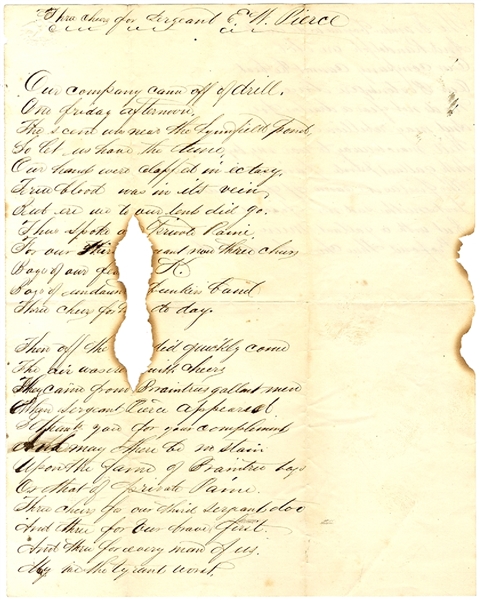 Three cheers for Sergeant E. W. Pierce
Our company came off of drill.
One friday afternoon,
The scene was near the Lynnfield pond
So let us have the tune,
Our hands were clapped in ectasy,
True blood was in its vein,
But ere we to our tents did go.
Thus spoke Private Paine
For our third now three cheers
Boys of our K.
Boys of Bunkers band
Three cheers to day.
Then off the did quickly come
The air was with cheers
They came from Braintrees gallant men
When sergeant Pierce appeared
I thank you for your compliment
And may there be no stain
Upon the fame of Braintree boys
Or that of private Paine.
Three cheers for our third sergeant too
And three for our brave first
And three for every man of us.
the tyrant worst.